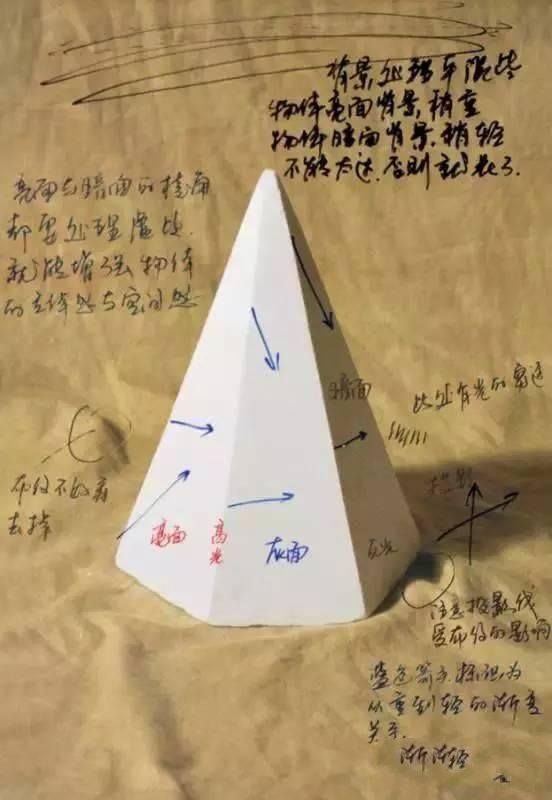 背景处理平涂些
物体亮面背景,稍重
物体暗面背景.稍轻
不能太过.否则就花了.
亮面与暗面的棱角
都要处理虚些.
就能增强物体
的立体感与空间感
暗面
此处有光的穿透
布纹不好看
去掉
投影
亮面
高光
灰面
反光
注意投影线
受布纹的影响
蓝色箭头标识为
从重到轻的渐变
关系.
渐渐轻